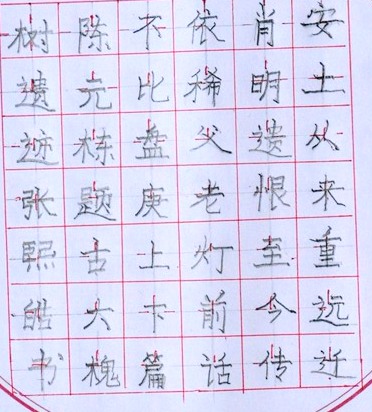 安土从来重远迁
肖明遗恨至今传
依稀父老灯前话
不比盘庚上卞篇
陈元栋题古大槐
树遗迹张熙皓书